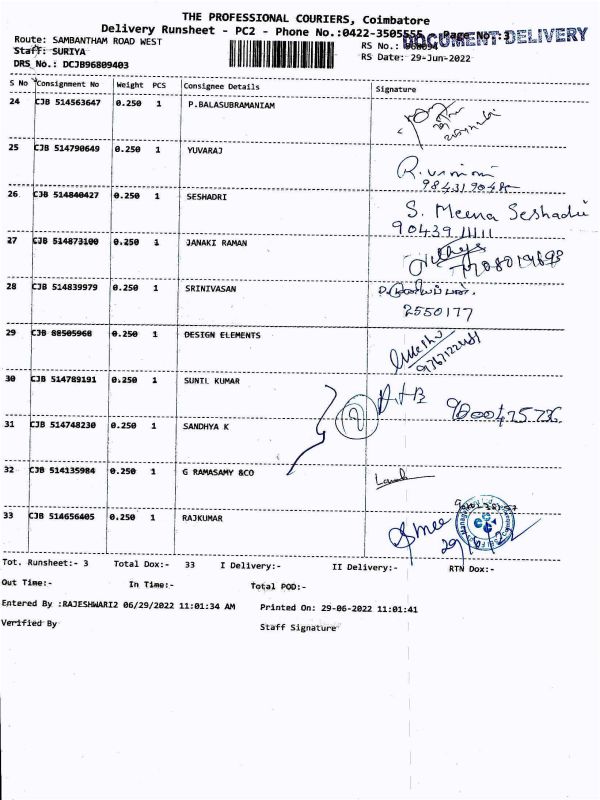 THE PROFESSIONAL COURIERS, Coimbatore
Delivery Runsheet - PC2 - Phone No.:0422-3505555 Page No.:3
DOCUMENT DELIVERY
Route: SAMBANTHAM ROAD WEST
RS No.:
Staff: SURIYA
RS Date: 29-Jun-2022
DRS_No.: DCJB96809403
S No Consignment No Weight PCS Consignee Details Signature
24 CJB 514563647 0.250 1 P.BALASUBRAMANIAM
25 CJB 514790649 0.250 1 YUVARAJ
9843190485
26 CJB 514840427 0.250 1 SESHADRI S. Meena Seshadri
90439 11111
27 CJB 514873100 0.250 1 JANAKI RAMAN
28 CJB 514839979 0.250 1 SRINIVASAN
2550177
29 CJB 88505968 0.250 1 DESIGN ELEMENTS
30 CJB 514789191 0.250 1 SUNIL KUMAR
31 CJB 514748230 0.250 1 SANDHYA K
32 CJB 514135984 0.250 1 G RAMASAMY &CO
33 CJB 514656405 0.250 1 RAJKUMAR
Tot. Runsheet:- 3 Total Dox:- 33 I Delivery:- II Delivery:- RTN Dox:-
Out Time:- In Time:- Total POD:-
Entered By :RAJESHWARI2 06/29/2022 11:01:34 AM Printed On: 29-06-2022 11:01:41
Verified By Staff Signature